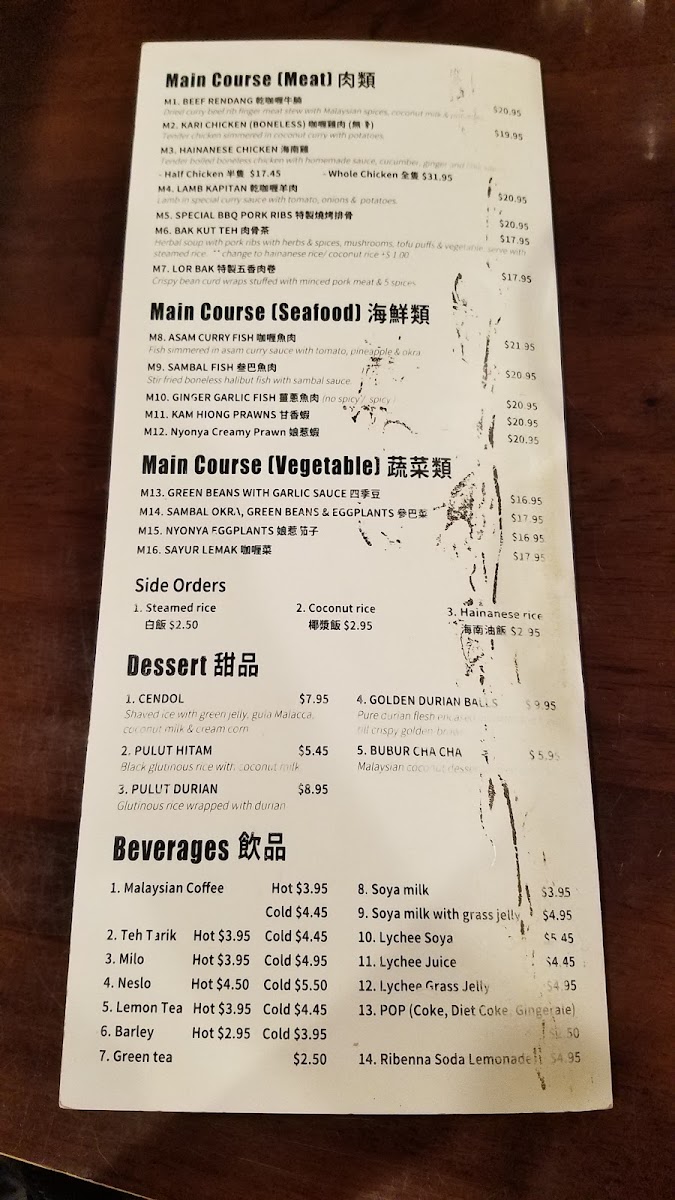 Main Course (Meat) 肉類
M1. BEEF RENDANG 乾咖喱牛腩
Dried curry beef rib finger meat stew with Malaysian spices, coconut milk &
$20.95
M2. KARI CHICKEN (BONELESS) 咖喱雞肉
Tender chicken simmered in coconut curry with potatoes.
$19.95
M3. HAINANESE CHICKEN 海南雞
Tender boiled boneless chicken with homemade sauce, cucumber, ginger and
- Half Chicken 半隻 $17.45 - Whole Chicken 全隻 $31.95
M4. LAMB KAPITAN 乾咖喱羊肉 $20.95
Lamb in special curry sauce with tomato, onions & potatoes.
M5. SPECIAL BBQ PORK RIBS 特製燒烤排骨 $20.95
M6. BAK KUT TEH 肉骨茶 $17.95
Herbal soup with pork ribs with herbs & spices, mushrooms, tofu puffs & vegetable. serve with
steamed rice. ** change to hainanese rice/ coconut rice +$1.00
M7. LOR BAK 特製五香肉卷 $17.95
Crispy bean curd wraps stuffed with minced pork meat & 5 spices
Main Course (Seafood) 海鮮類
M8. ASAM CURRY FISH 咖喱魚肉 $21.95
Fish simmered in asam curry sauce with tomato, pineapple & okra
M9. SAMBAL FISH 叁巴魚肉 $20.95
Stir fried boneless halibut fish with sambal sauce.
M10. GINGER GARLIC FISH 薑蔥魚肉 (no spicy / spicy $20.95
M11. KAM HIONG PRAWNS 甘香蝦 $20.95
M12. Nyonya Creamy Prawn 娘惹蝦 $20.95
Main Course (Vegetable) 蔬菜類
M13. GREEN BEANS WITH GARLIC SAUCE 四季豆 $16.95
M14. SAMBAL OKRA, GREEN BEANS & EGGPLANTS 參巴菜 $17.95
M15. NYONYA EGGPLANTS 娘惹茄子 $16.95
M16. SAYUR LEMAK 咖喱菜 $17.95
Side Orders
1. Steamed rice 2. Coconut rice 3. Hainanese rice
白飯 $2.50 椰漿飯 $2.95 海南油飯 $2.95
Dessert 甜品
1. CENDOL $7.95
Shaved ice with green jelly, gula Malacca,
coconut milk & cream corn
2. PULUT HITAM $5.45
Black glutinous rice with coconut milk
3. PULUT DURIAN $8.95
Glutinous rice wrapped with durian
4. GOLDEN DURIAN BALLS $9.95
Pure durian flesh encased
till crispy golden brown
5. BUBUR CHA CHA $5.95
Malaysian coconut dessert
Beverages 飲品
1. Malaysian Coffee Hot $3.95
Cold $4.45
2. Teh Tarik Hot $3.95 Cold $4.45
3. Milo Hot $3.95 Cold $4.95
4. Neslo Hot $4.50 Cold $5.50
5. Lemon Tea Hot $3.95 Cold $4.45
6. Barley Hot $2.95 Cold $3.95
7. Green tea $2.50
8. Soya milk $3.95
9. Soya milk with grass jelly $4.95
10. Lychee Soya $5.45
11. Lychee Juice $4.45
12. Lychee Grass Jelly $4.95
13. POP (Coke, Diet Coke, Gingerale)
14. Ribenna Soda Lemonade $4.95